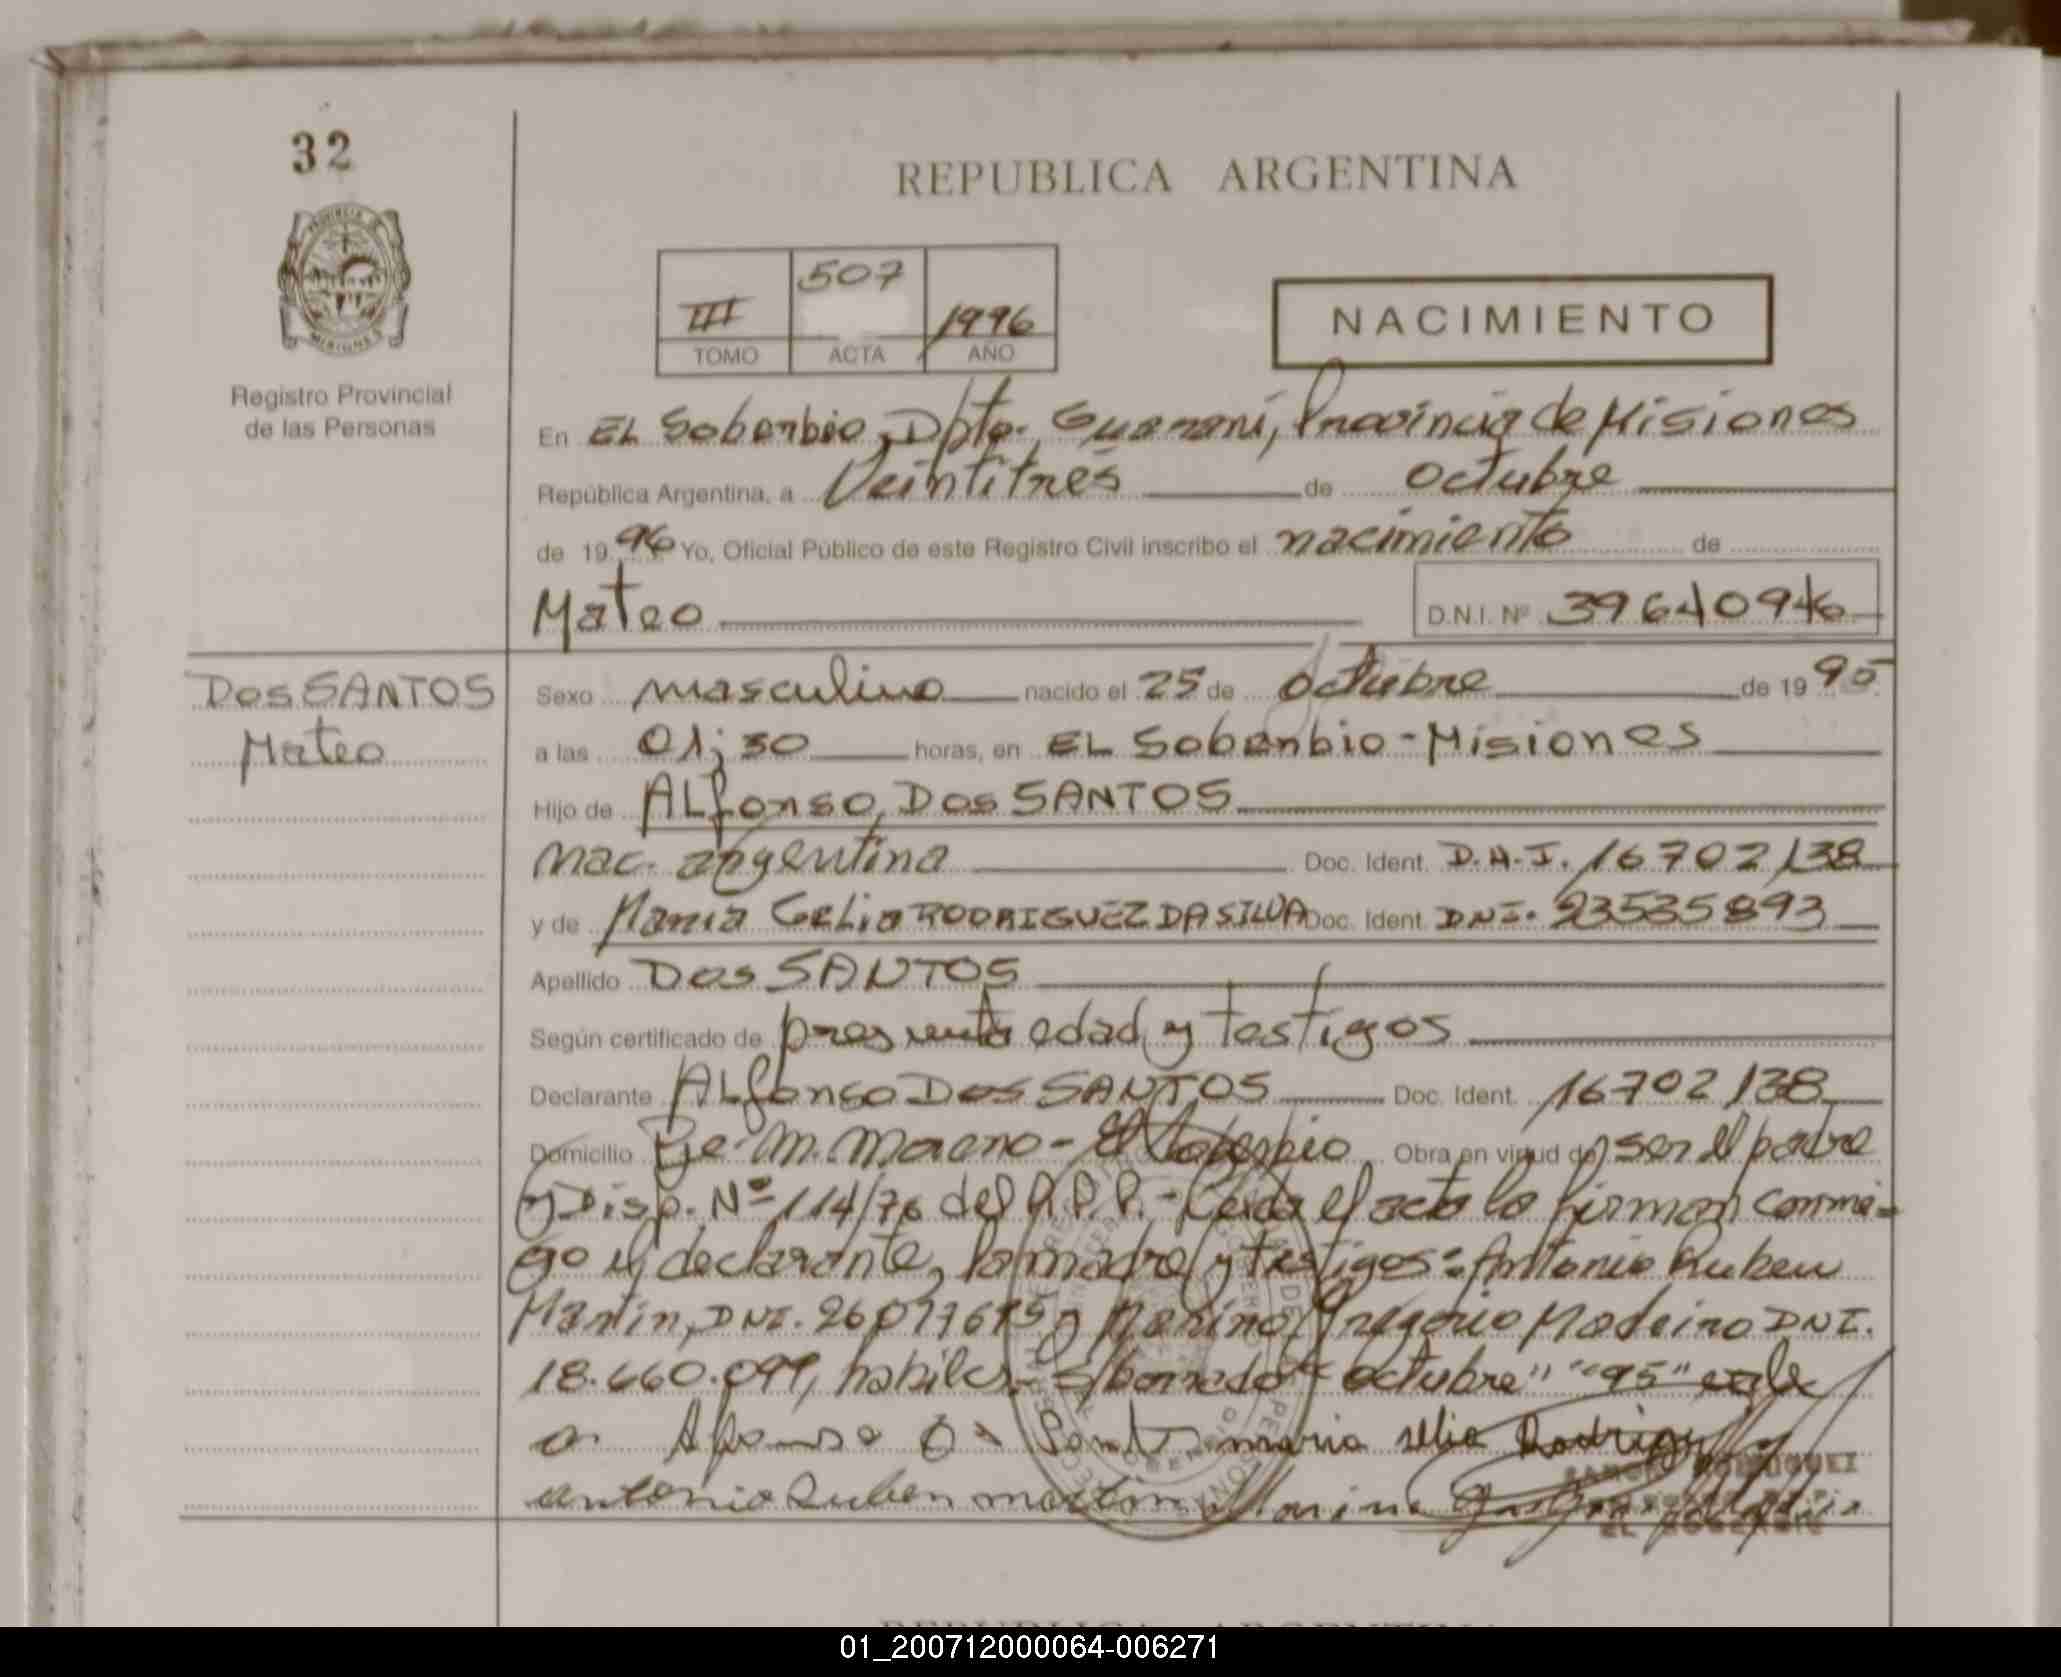 32
REPUBLICA ARGENTINA
III 507 1996
TOMO ACTA AÑO
NACIMIENTO
Registro Provincial
de las Personas
En EL Soberbio, Dpto. Guaraní, Provincia de Misiones
República Argentina, a Veintitrés de octubre
de 1996 Yo, Oficial Público de este Registro Civil inscribo el nacimiento de
Mateo D.N.I. Nº 39640946
Dos SANTOS
Mateo
Sexo masculino nacido el 25 de octubre de 1995
a las 01;30 horas, en EL Soberbio - Misiones
Hijo de ALfonso Dos SANTOS
nac. argentina Doc. Ident. D.N.I. 16702138
y de Maria Celia RODRIGUEZ DA SILVA Doc. Ident. DNI. 23535893
Apellido Dos SANTOS
Según certificado de presunta edad y testigos
Declarante ALfonso Dos SANTOS Doc. Ident. 16702138
Domicilio Pje. M. Moreno - El Soberbio Obra en virtud de ser el padre
y Disp. Nº 114/76 del R.P.P. - Leida el acta la firman conmi=
go el declarante, la madre y testigos: Antonio Ruben
Martin, DNI. y Marino Gregorio Madeiro DNI.
18.660.099, habiles - S/borrado "octubre" "95" vale
Maria selia Rodrigu
antonio Ruben martin Marino
RODRIGUEZ
EL SOBERBIO
01_200712000064-006271